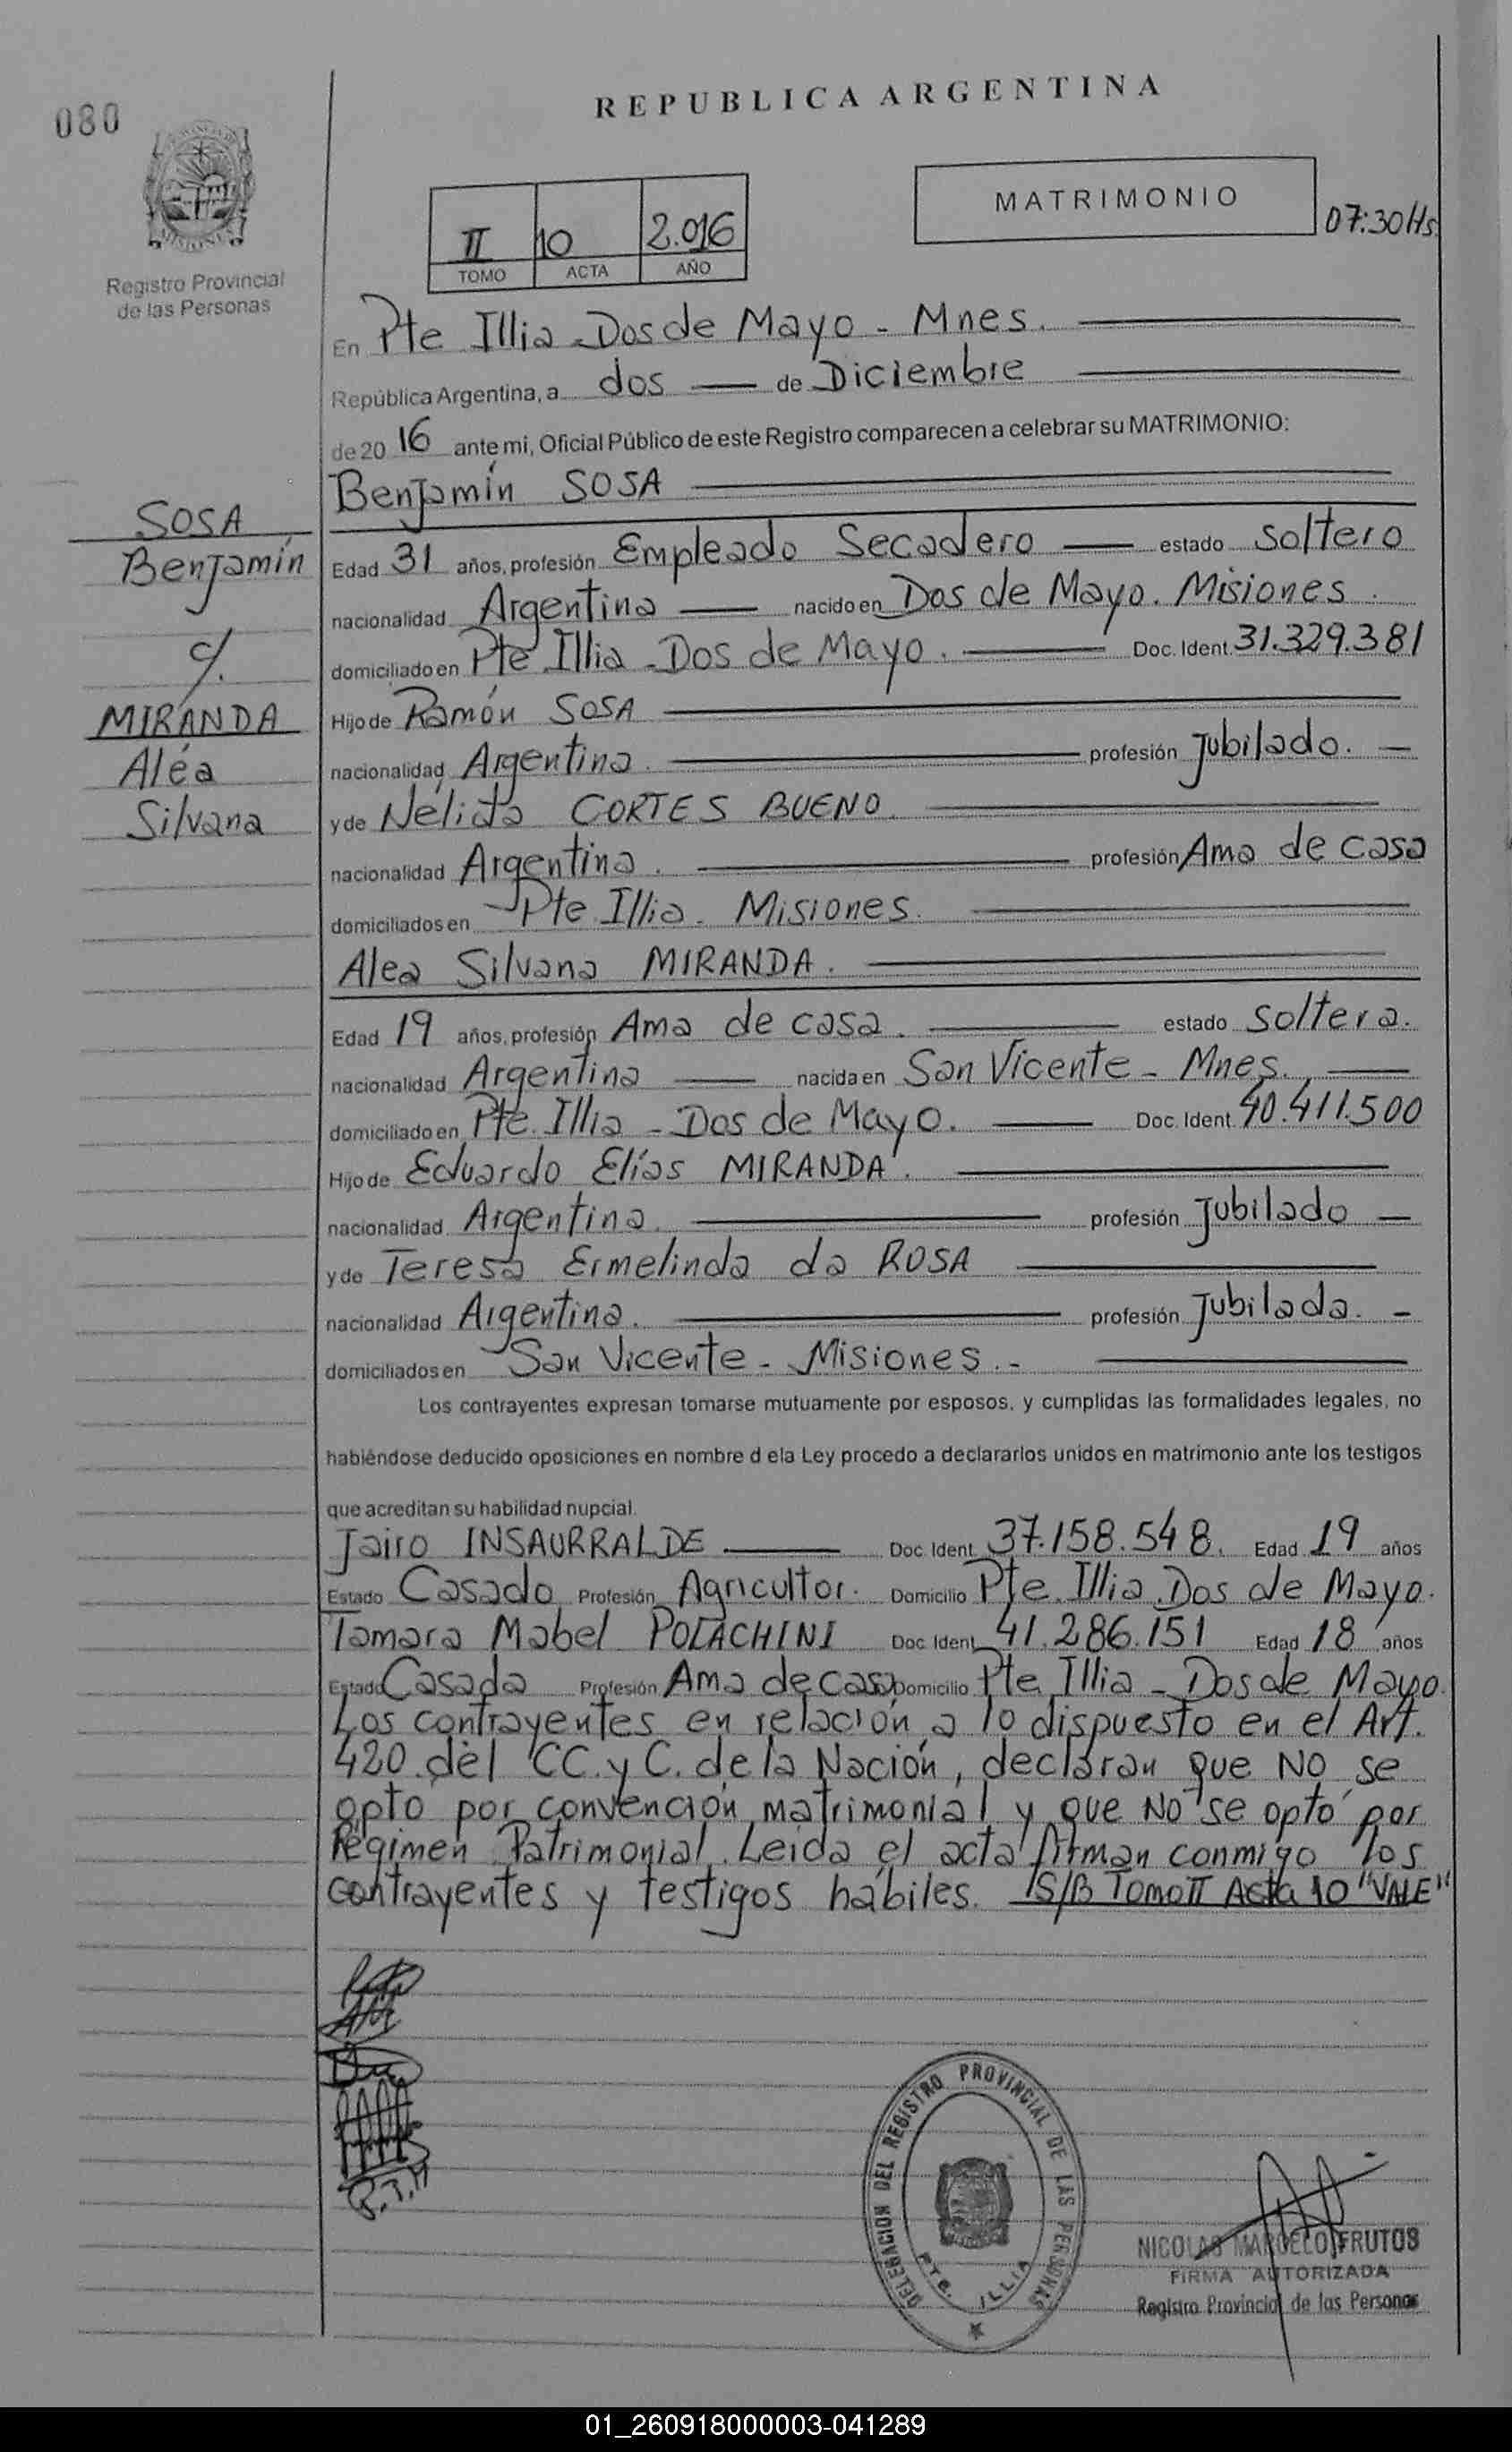 REPUBLICA ARGENTINA
080
MISIONES
Registro Provincial
de las Personas
II 10 2.016
TOMO ACTA AÑO
MATRIMONIO
07:30Hs.
En Pte Illia - Dos de Mayo - Mnes.
República Argentina, a dos de Diciembre
de 20 16 ante mi, Oficial Público de este Registro comparecen a celebrar su MATRIMONIO:
SOSA
Benjamín
c/.
MIRANDA
Aléa
Silvana
Benjamín SOSA
Edad 31 años, profesión Empleado Secadero estado soltero
nacionalidad Argentina nacido en Dos de Mayo. Misiones.
domiciliado en Pte Illia - Dos de Mayo. Doc. Ident. 31.329.381
Hijo de Ramón SOSA
nacionalidad Argentina. profesión Jubilado.
y de Nélida CORTES BUENO.
nacionalidad Argentina. profesión Ama de casa
domiciliados en Pte Illia - Misiones.
Alea Silvana MIRANDA.
Edad 19 años, profesión Ama de casa. estado soltera.
nacionalidad Argentina nacida en San Vicente - Mnes.
domiciliado en Pte. Illia - Dos de Mayo. Doc. Ident. 40.411.500
Hijo de Eduardo Elías MIRANDA.
nacionalidad Argentina. profesión Jubilado
y de Teresa Ermelinda da ROSA
nacionalidad Argentina. profesión Jubilada.
domiciliados en San Vicente - Misiones.-
Los contrayentes expresan tomarse mutuamente por esposos, y cumplidas las formalidades legales, no
habiéndose deducido oposiciones en nombre d ela Ley procedo a declararlos unidos en matrimonio ante los testigos
que acreditan su habilidad nupcial.
Jairo INSAURRALDE Doc. Ident. 37.158.548. Edad 19 años
Estado Casado Profesión Agricultor. Domicilio Pte. Illia. Dos de Mayo.
Tamara Mabel POLACHINI Doc. Ident. 41.286.151 Edad 18 años
Estado Casada Profesión Ama de casa Domicilio Pte Illia - Dos de Mayo.
Los contrayentes en relación a lo dispuesto en el Art.
420 del CC. y C. de la Nación, declaran que NO se
opto por convención matrimonial y que NO se optó por
Régimen Patrimonial. Leida el acta firman conmigo los
contrayentes y testigos hábiles. S/B Tomo II Acta 10 "VALE"
DELEGACION DEL REGISTRO PROVINCIAL DE LAS PERSONAS
PTE. ILLIA
NICOLAS MARCELO FRUTOS
FIRMA AUTORIZADA
Registro Provincial de las Personas
01_260918000003-041289